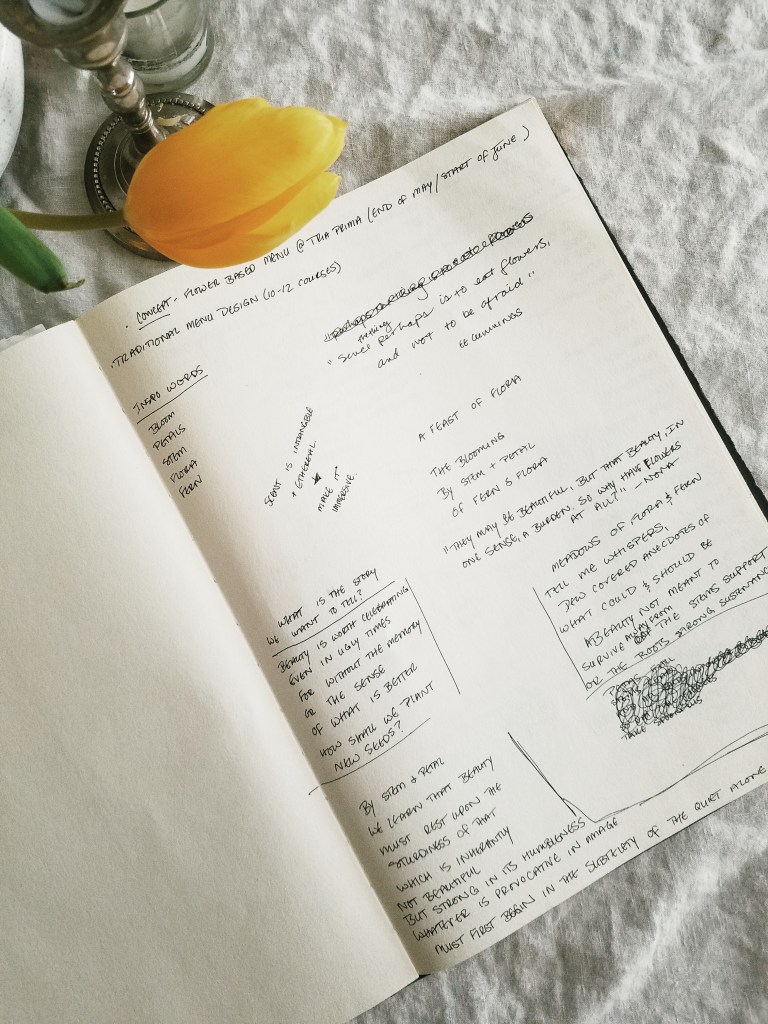 · CONCEPT - FLOWER BASED MENU @ TRIA PRIMA (END OF MAY / START OF JUNE)
· TRADITIONAL MENU DESIGN (10-12 COURSES)
the thing
"since perhaps is to eat flowers,
and not to be afraid"
ee cummings
INSPO WORDS
BLOOM
PETALS
STEM
FLORA
FERN
SCENT IS INTANGIBLE
+ ETHEREAL.
MAKE IT
IMMERSIVE.
A FEAST OF FLORA
THE BLOOMING
BY STEM + PETAL
OF FERN & FLORA
"THEY MAY BE BEAUTIFUL, BUT THAT BEAUTY, IN
ONE SENSE, A BURDEN. SO WHY HAVE FLOWERS
AT ALL?" - NONA
MEADOWS OF FLORA & FERN
TELL ME WHISPERS,
DEW COVERED ANECDOTES OF
WHAT COULD & SHOULD BE
A BEAUTY NOT MEANT TO
SURVIVE AWAY FROM THE STEMS SUPPORT
OR THE ROOTS STRONG SUSTENANCE
WHAT IS THE STORY
WE WANT TO TELL?
BEAUTY IS WORTH CELEBRATING
EVEN IN UGLY TIMES
FOR WITHOUT THE MEMORY
OR THE SENSE
OF WHAT IS BETTER
HOW SHALL WE PLANT
NEW SEEDS?
BY STEM & PETAL
WE LEARN THAT BEAUTY
MUST REST UPON THE
STURDINESS OF THAT
WHICH IS INHERANTLY
NOT BEAUTIFUL
BUT STRONG IN ITS HUMBLENESS
WHATEVER IS PROVOCATIVE IN IMAGE
MUST FIRST BEGIN IN THE SUBTELTY OF THE QUIET ALONE